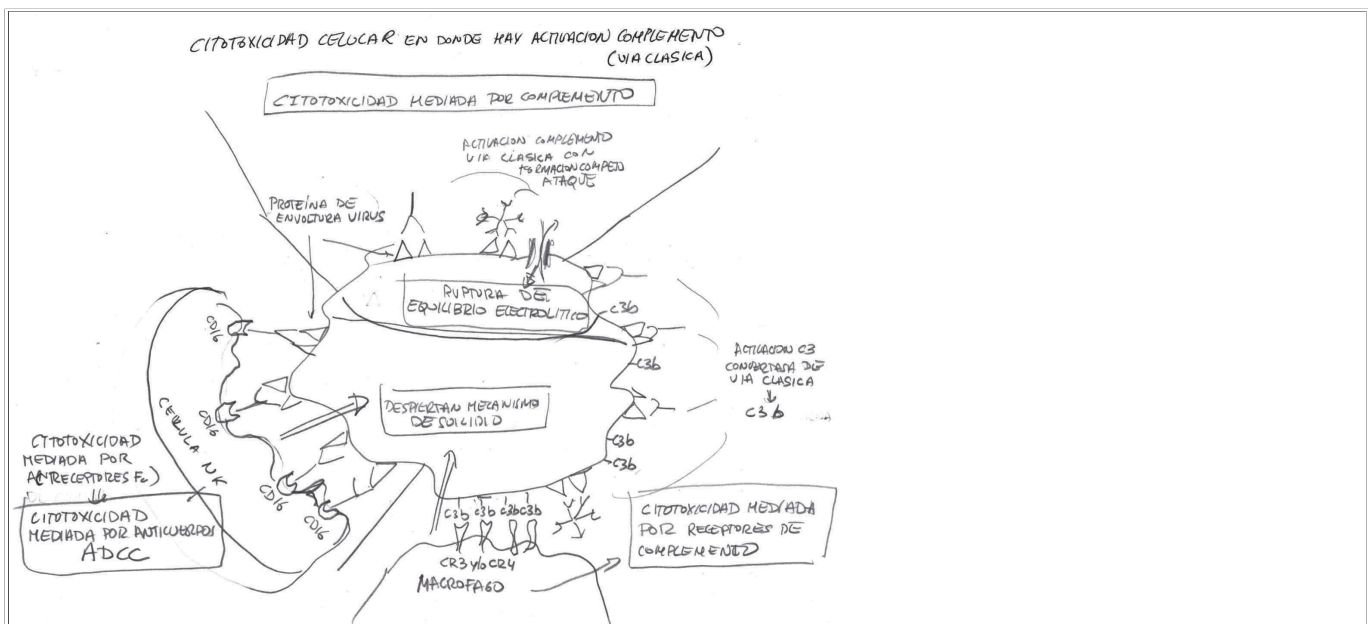 CITOTOXICIDAD CELULAR EN DONDE HAY ACTIVACION COMPLEMENTO
(VIA CLASICA)
CITOTOXICIDAD MEDIADA POR COMPLEMENTO
ACTIVACION COMPLEMENTO
VIA CLASICA CON
FORMACION COMPLEJO
ATAQUE
PROTEÍNA DE
ENVOLTURA VIRUS
RUPTURA DEL
EQUILIBRIO ELECTROLITICO
C3b
C3b
C3b
C3b
ACTIVACION C3
CONVERTASA DE
VIA CLASICA
C3b
CD16
CD16
CD16
CD16
CELULA NK
DESPIERTAN MECANISMO
DE SUICIDIO
CITOTOXICIDAD
MEDIADA POR
RECEPTORES Fc)
CITOTOXICIDAD
MEDIADA POR ANTICUERPOS
ADCC
C3b C3b C3b C3b
CR3 y/o CR4
MACROFAGO
CITOTOXICIDAD MEDIADA
POR RECEPTORES DE
COMPLEMENTO